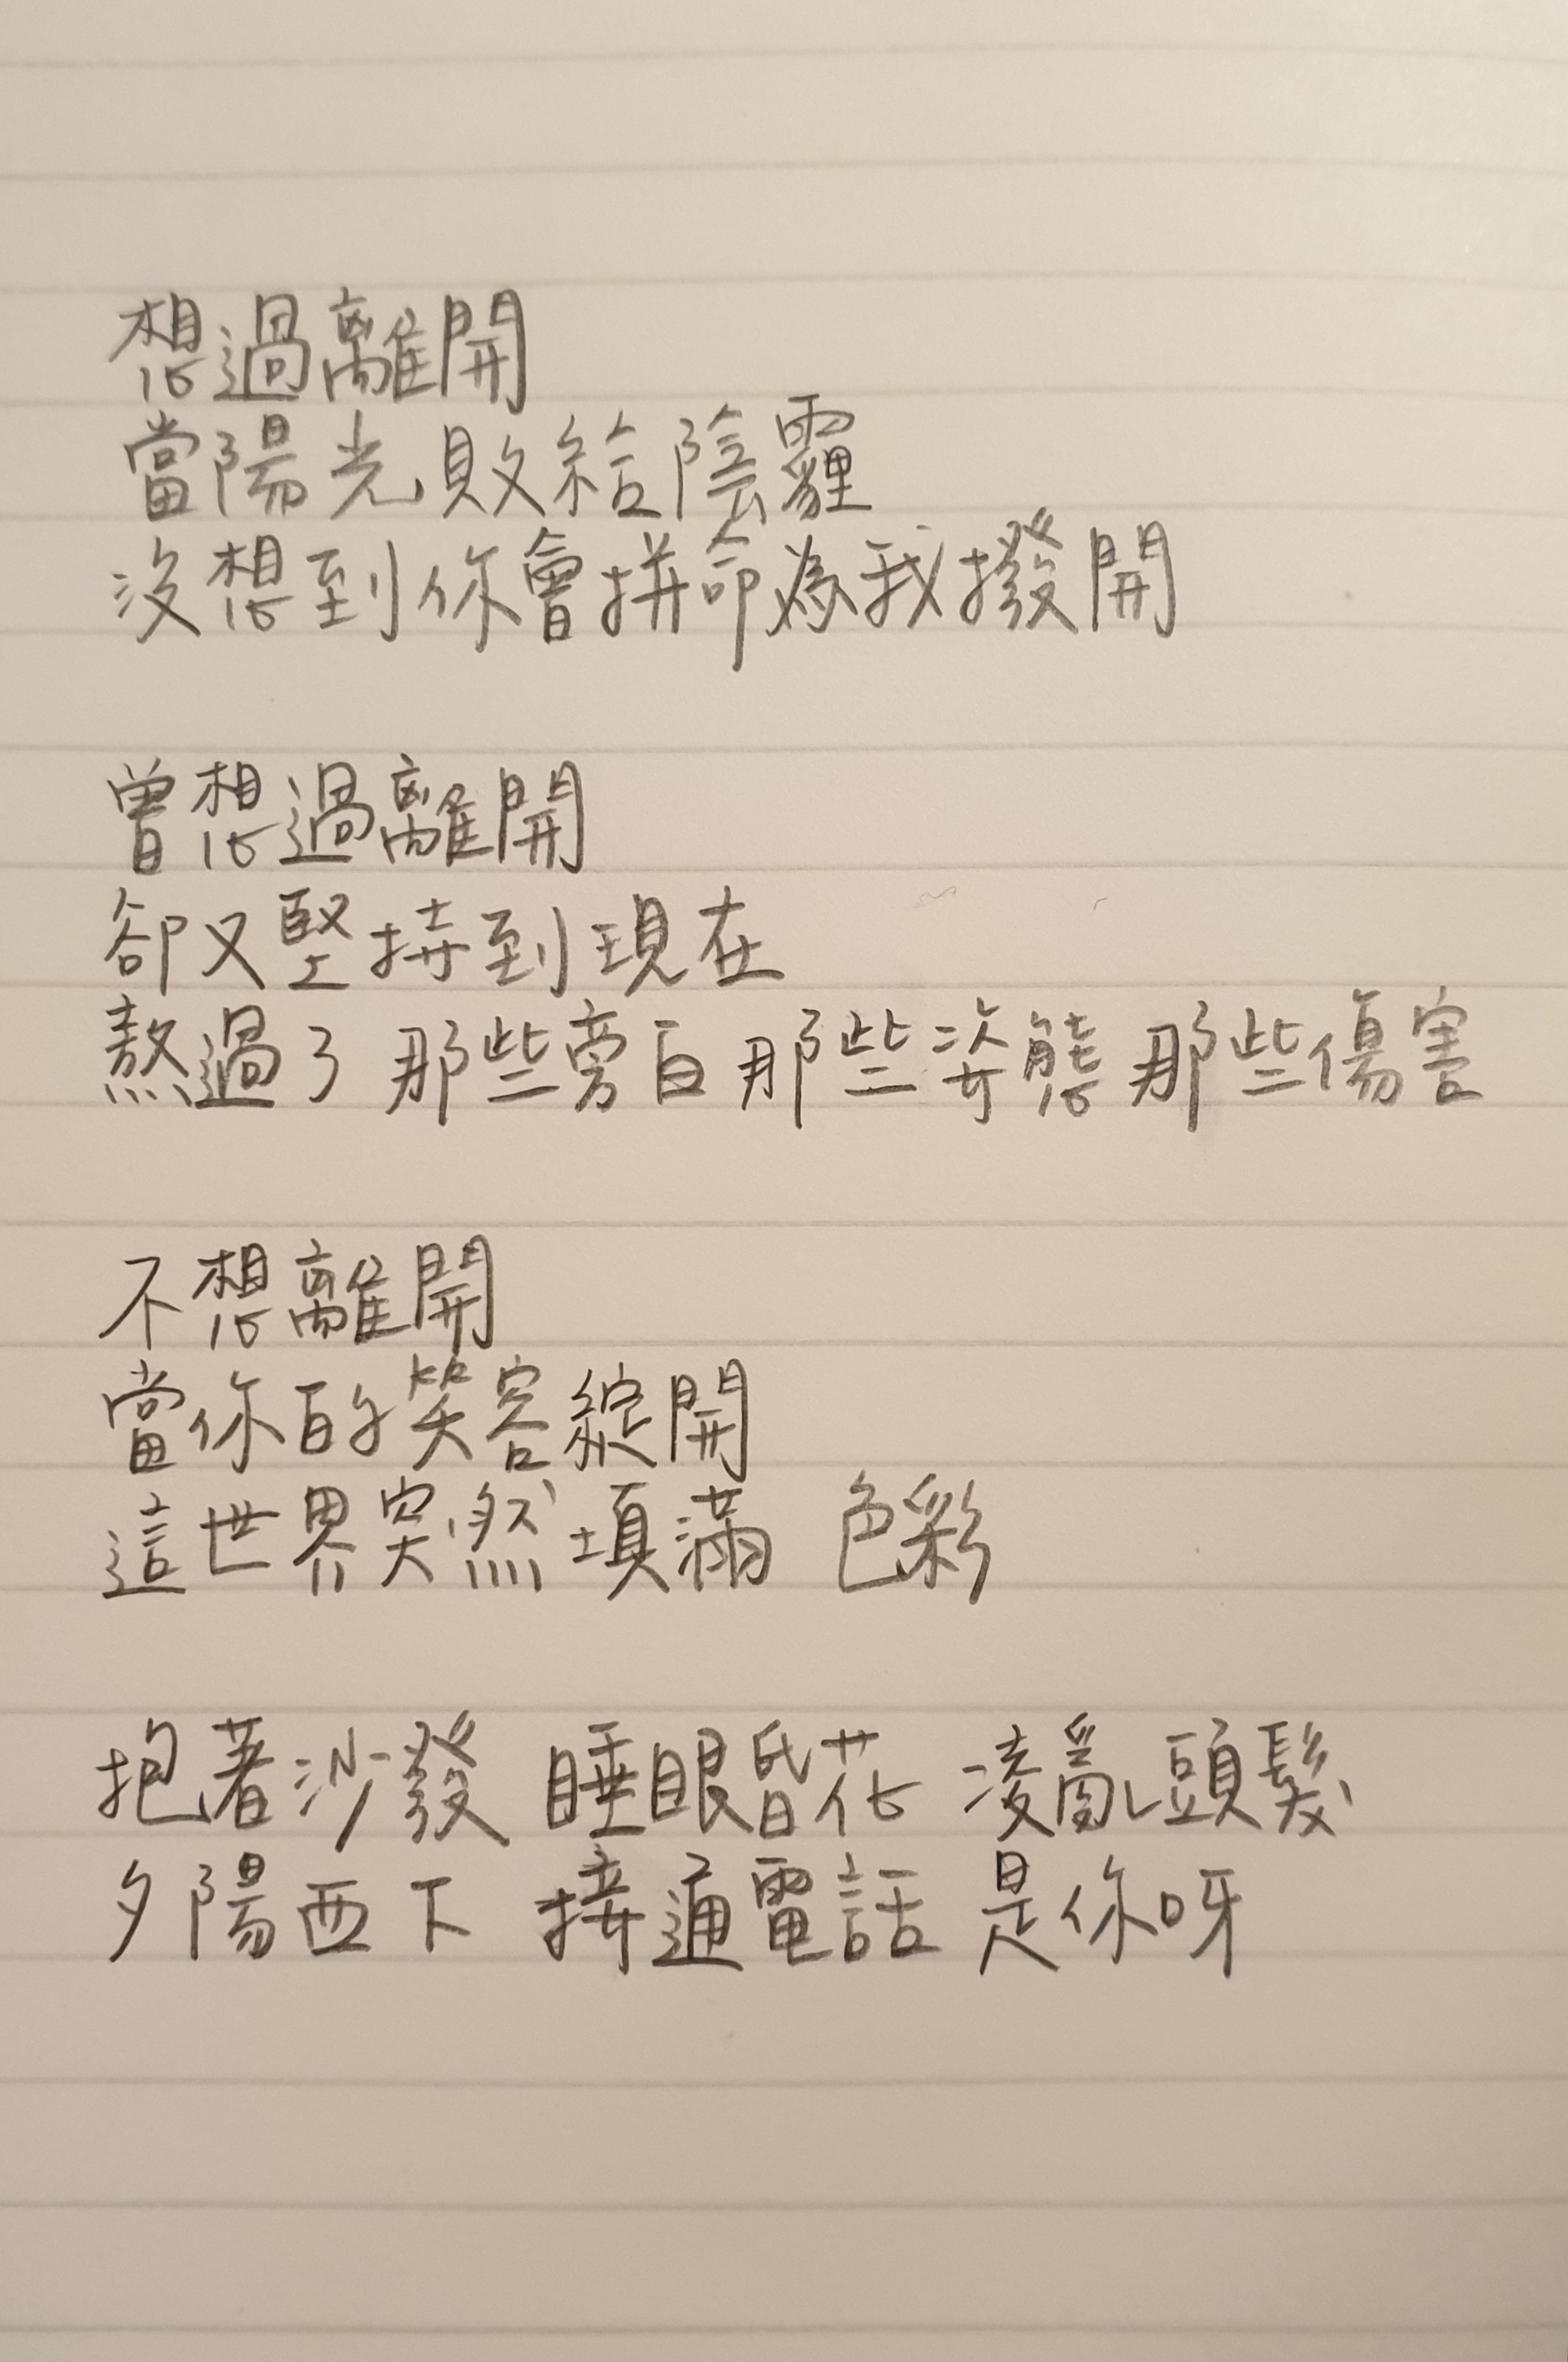 想過離開
當陽光敗給陰霾
沒想到你會拼命為我撥開
曾想過離開
卻又堅持到現在
熬過了 那些旁白 那些姿態 那些傷害
不想離開
當你的笑容綻開
這世界突然填滿 色彩
抱著沙發 睡眼昏花 凌亂頭髮
夕陽西下 接通電話 是你呀